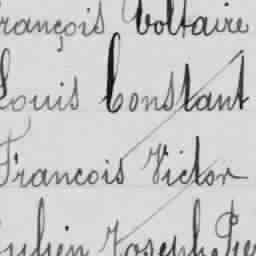 rançois Voltaire
Louis Constant
François Victor
Julien Joseph Pie